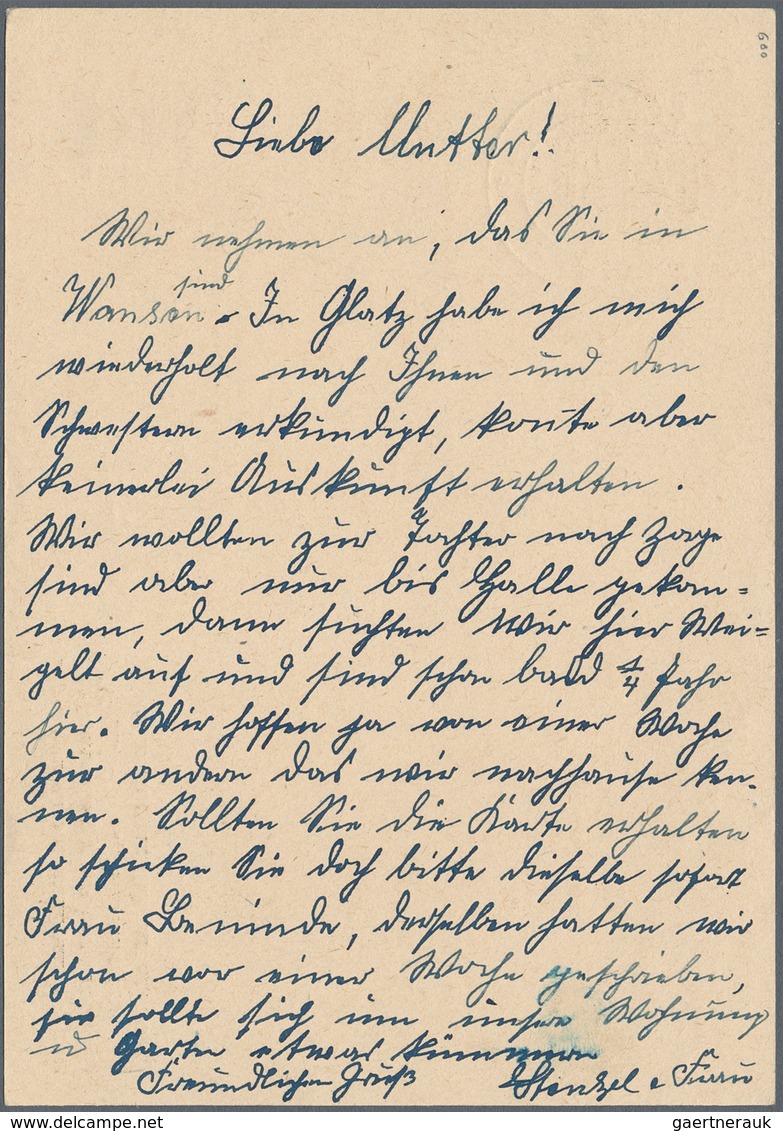 600
Liebe Mutter!
Wir nehmen an, das Sie in
sind
Wansen. In Glatz habe ich mich
wiederholt nach Ihnen und den
Schwestern erkundigt, konte aber
keinerlei Auskunft erhalten.
Wir wollten zur Tochter nach
sind aber nur bis Halle gekom=
men, dann suchten wir hier Wei=
gelt auf und sind schon bald 1/4 Jahr
hier. Wir hoffen ja von einer Woche
zur andern das wir nachhause kön-
nen. Sollten Sie die Karte erhalten
so schicken Sie doch bitte dieselbe sofort
Frau, derselben hatten wir
schon vor einer Woche geschrieben,
sie sollte sich um unsere Wohnung
u Garten etwas kümmern
Freundlichen Gruß Stenzel u Frau
delcampe.net
gaertnerauk